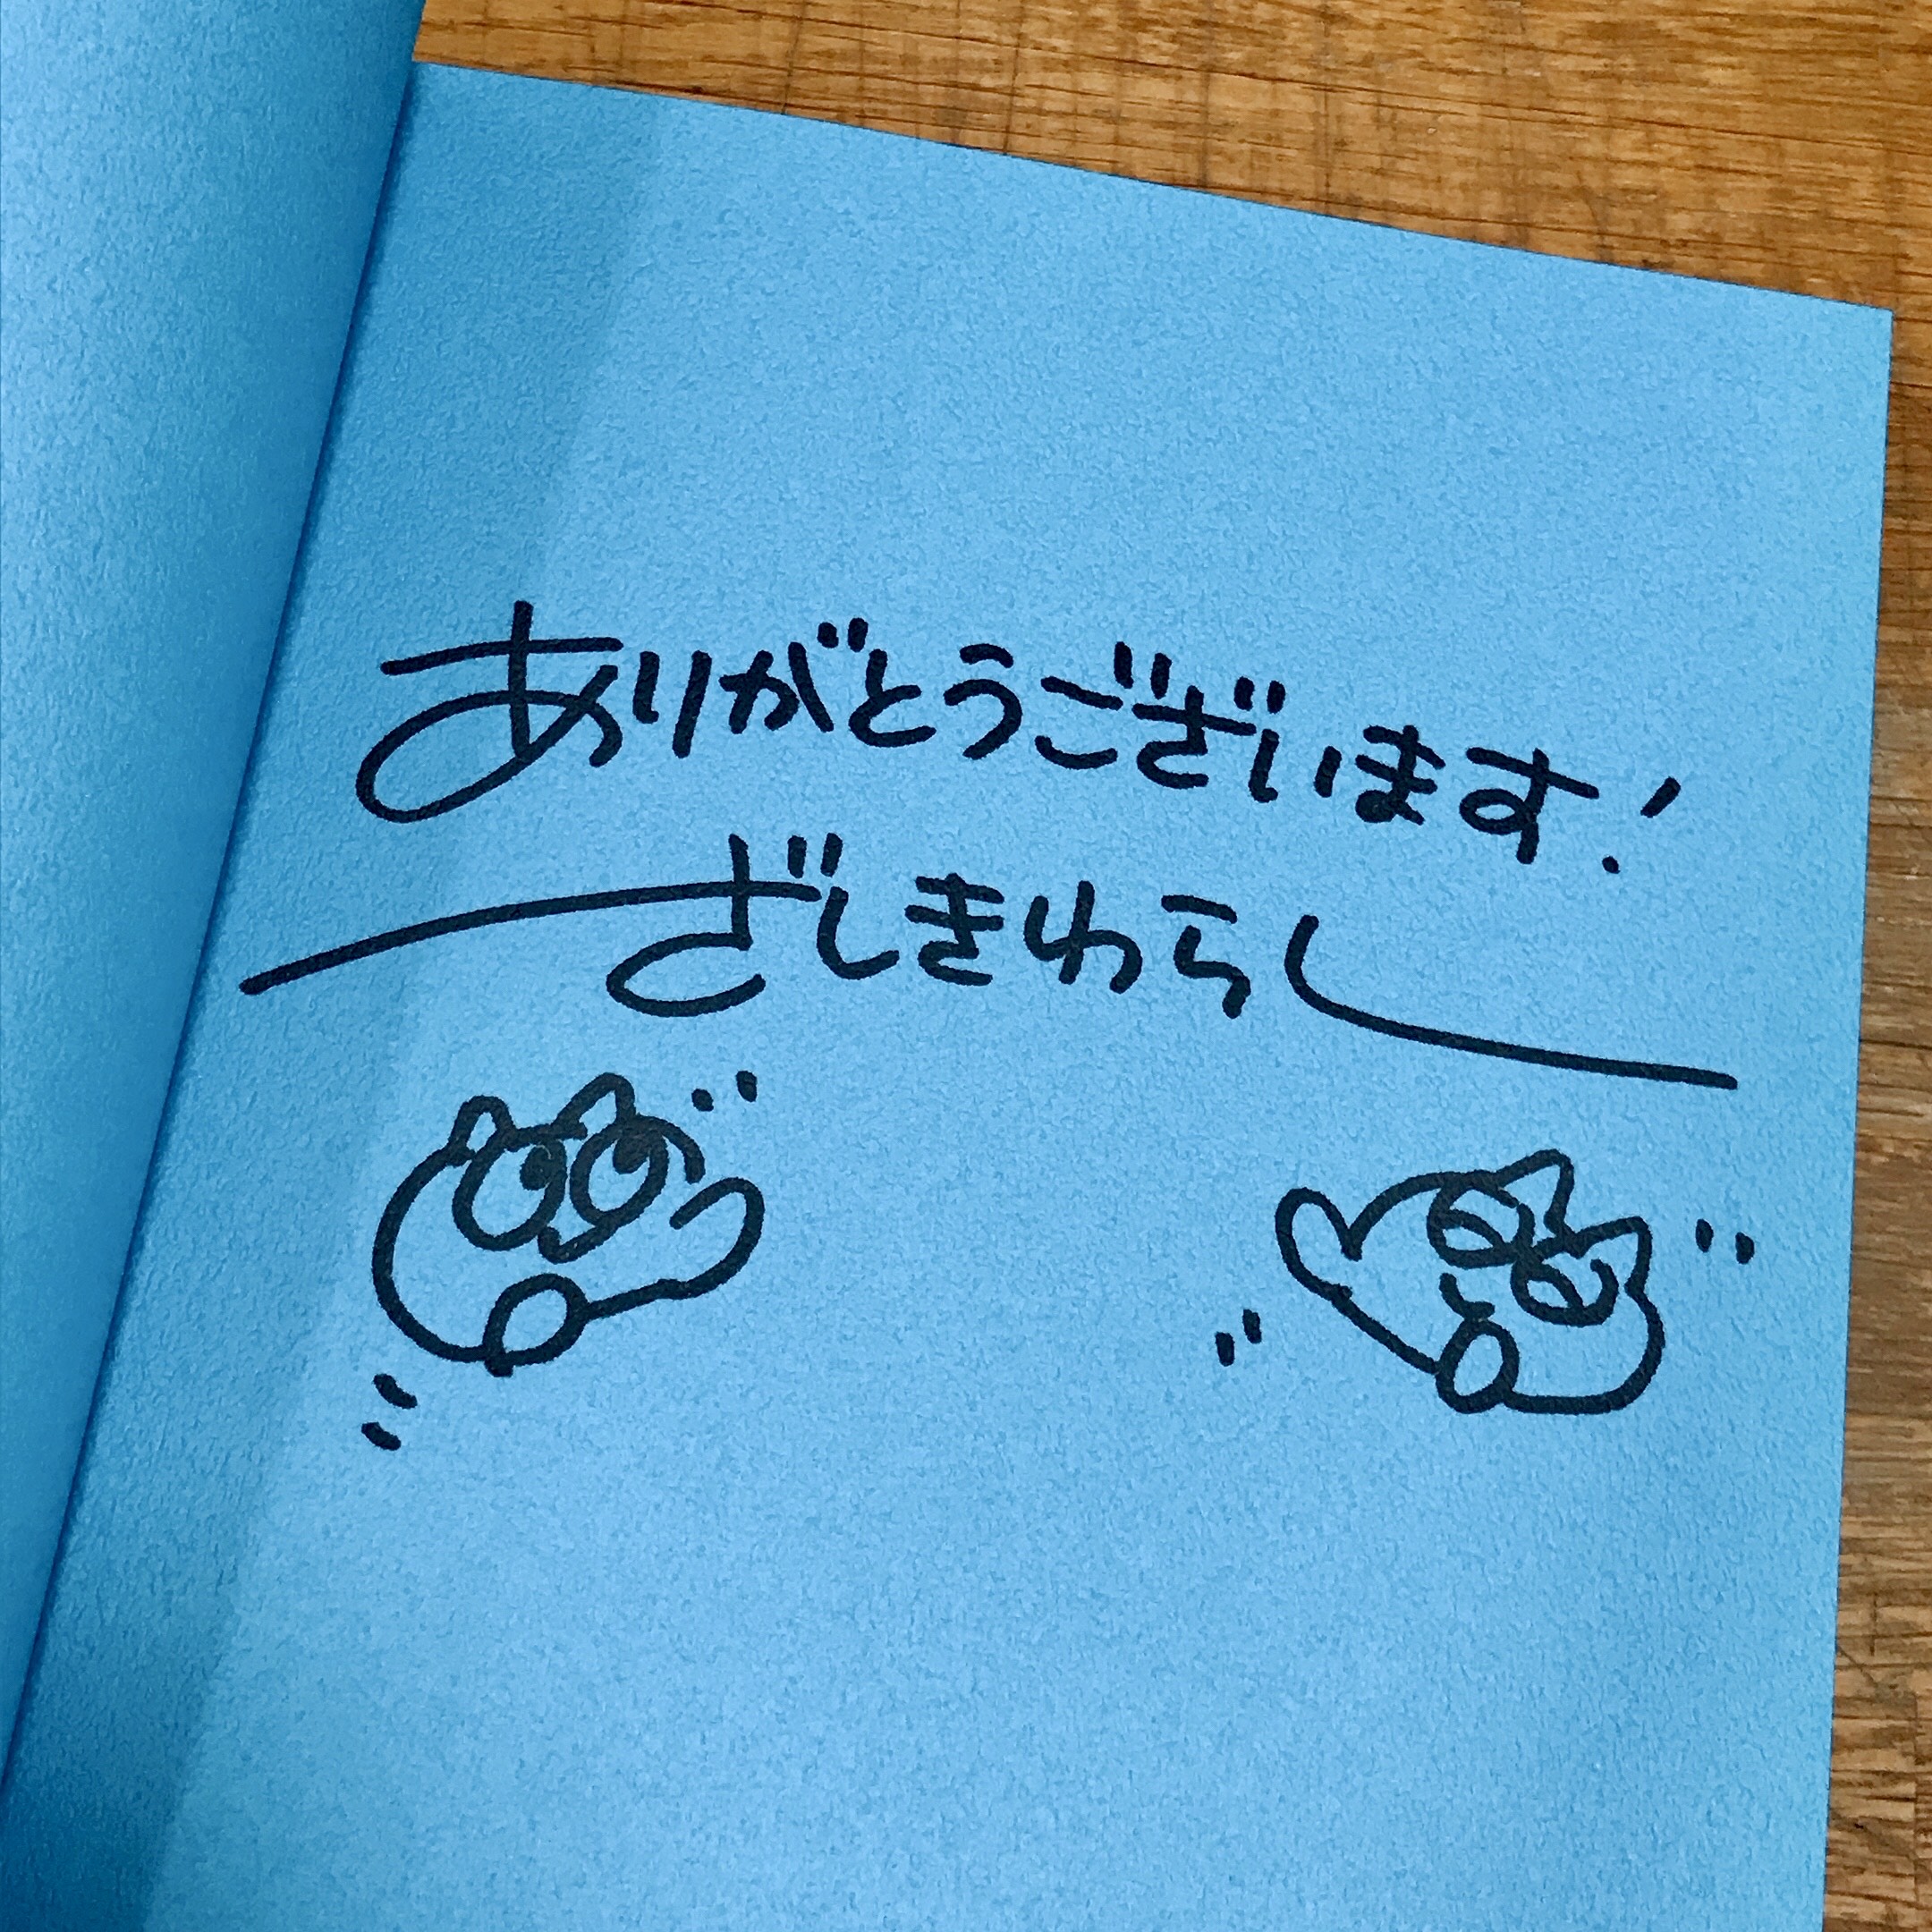 ありがとうございます！
ざしきわらし